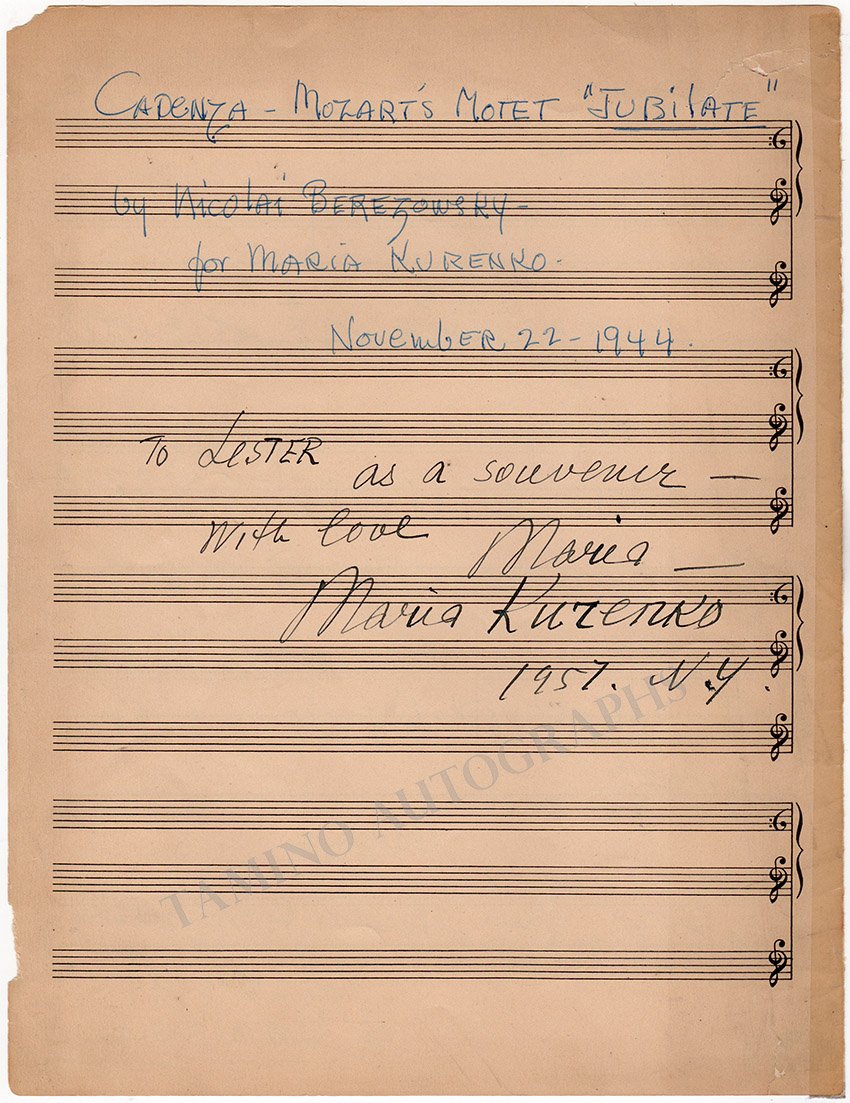 CADENZA - MOZART'S MOTET "JUBILATE"
by Nicolai BEREZOWSKY -
for MARIA KURENKO -
November 22 - 1944.
TO LESTER as a souvenir —
With love Maria —
Maria Kurenko
1957. N.Y.
TAMINO AUTOGRAPHS